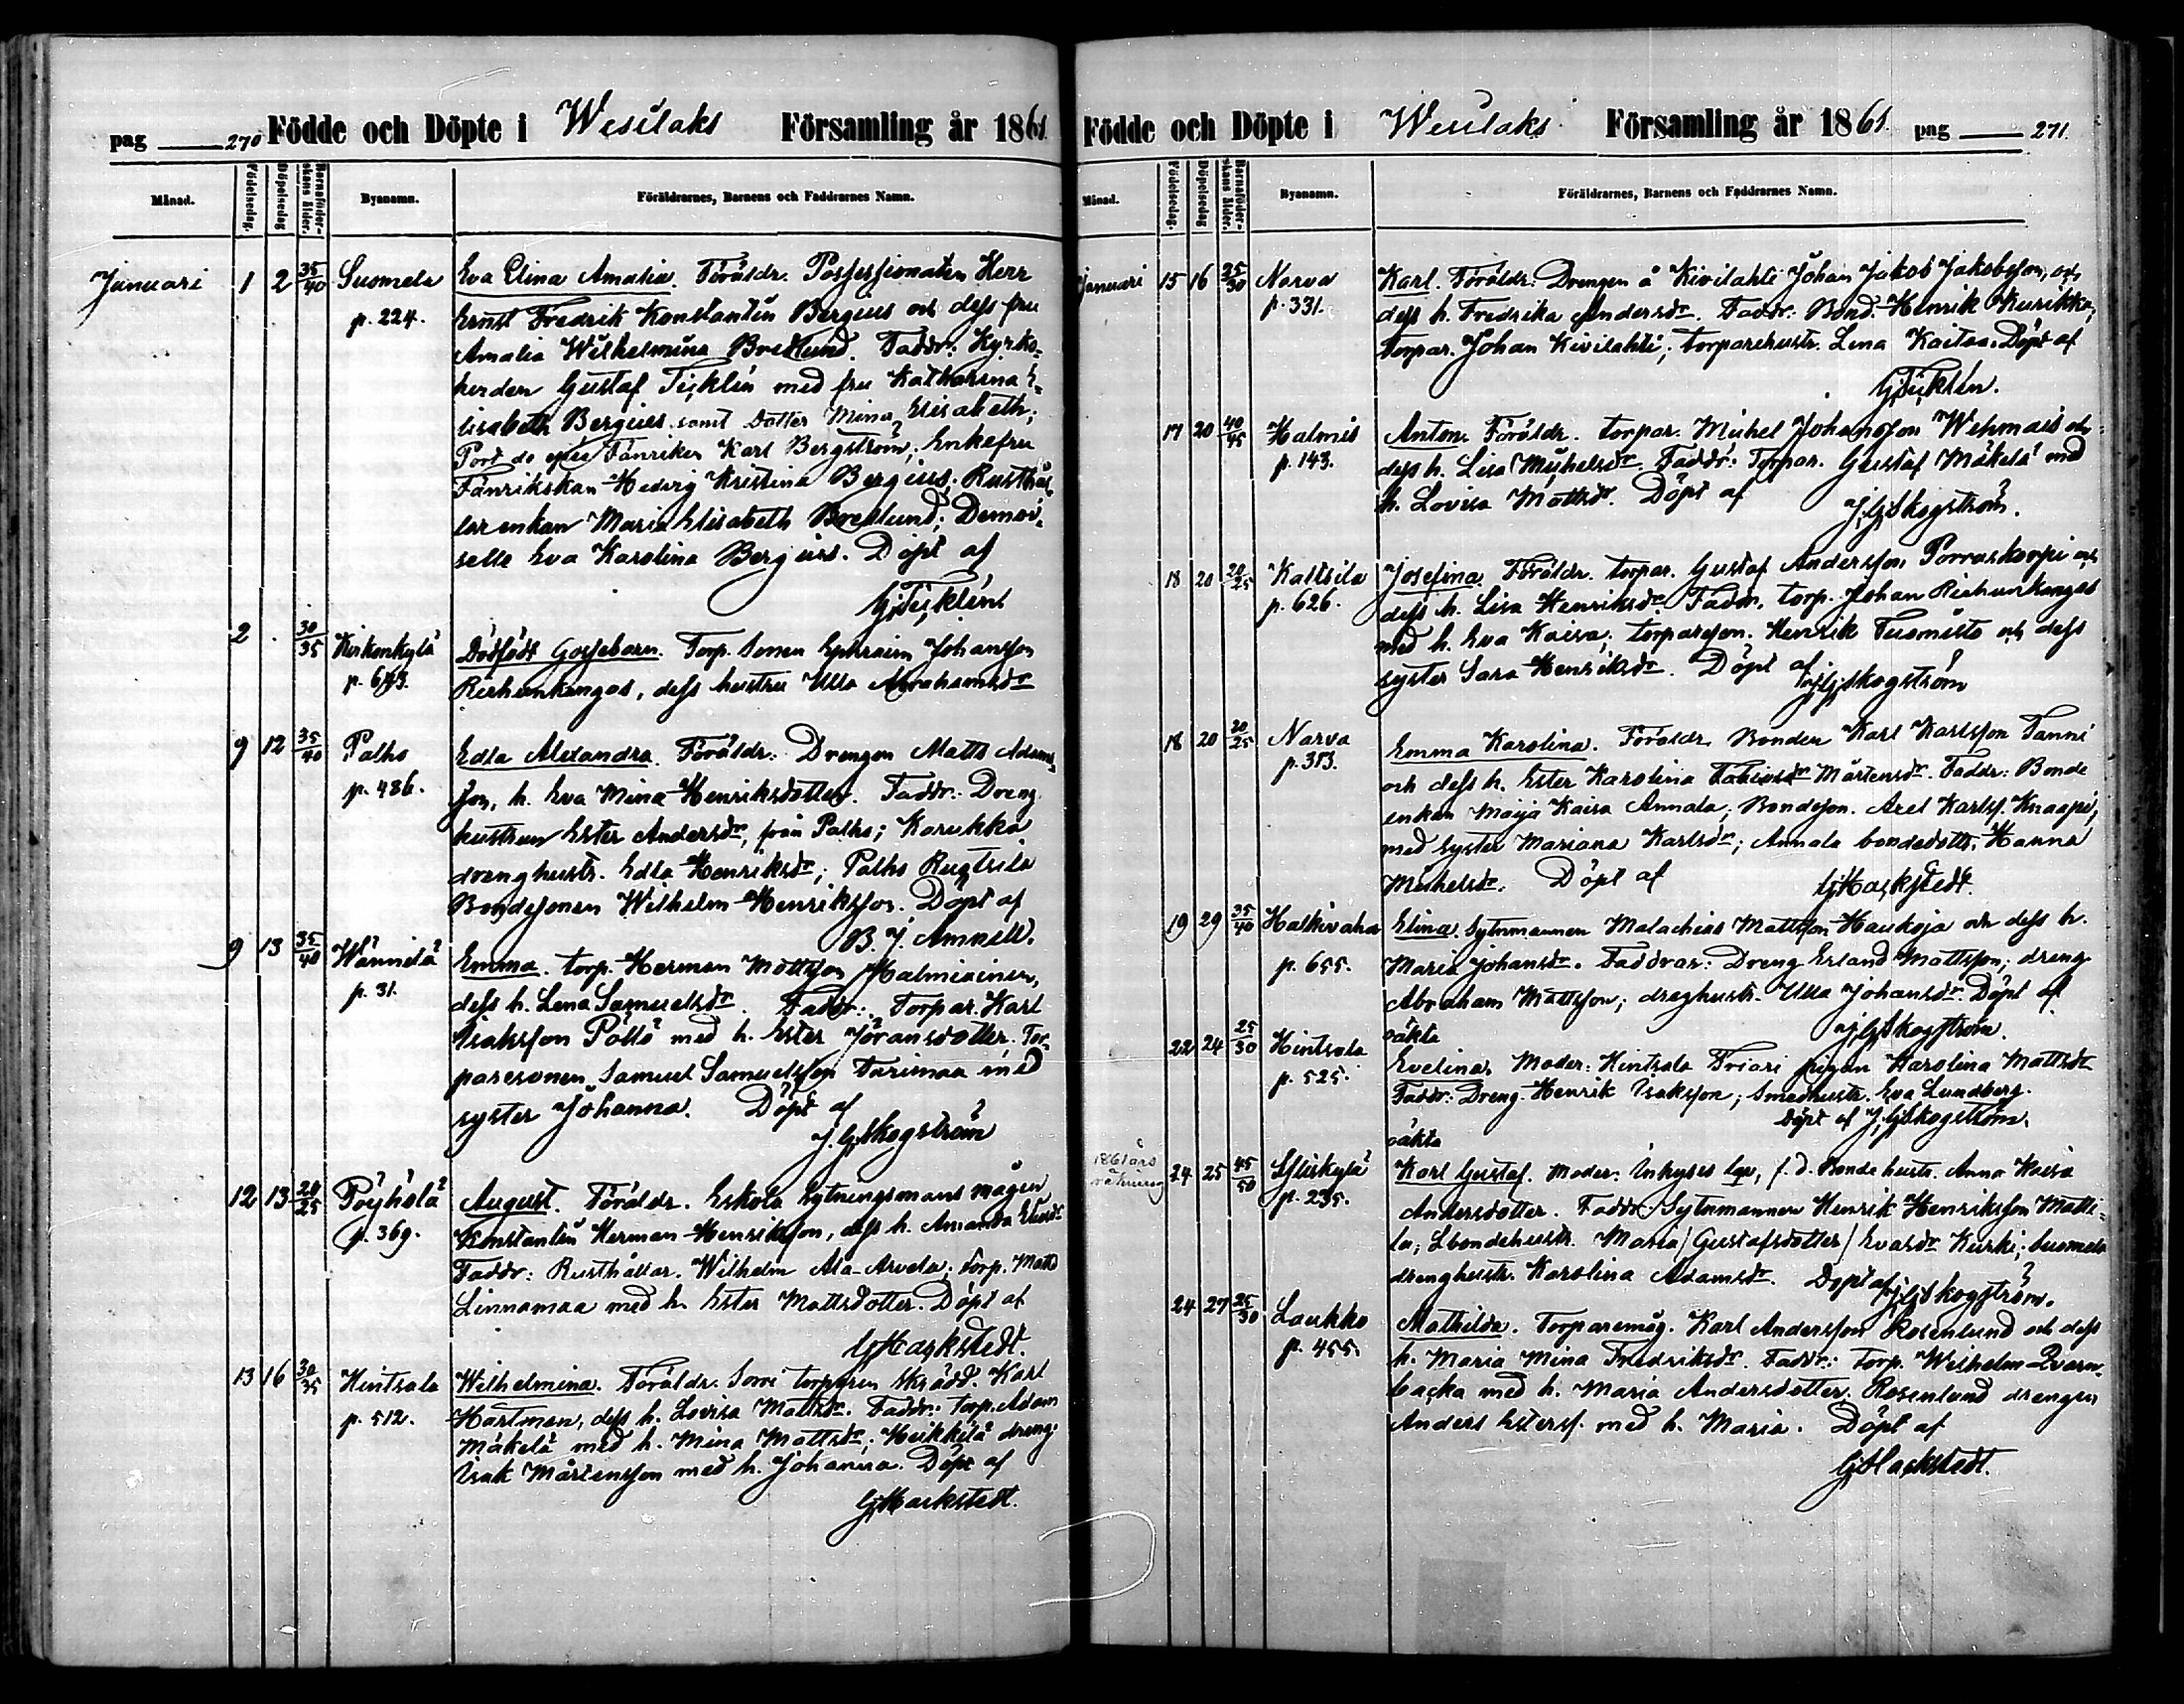 pag 270 Födde och Döpte i Wesilaks Församling år 1861.
Månad. Födelsedag. Döpelsedag Barnaföder-skans ålder. Byanamn. Föräldrarnes, Barnens och Faddrarnes Namn.
Januari 1 2 35/40 Suomela Eva Elina Amalia. Föräldr. Possessionaten Herr
p. 224. Ernst Fredrik Konstantin Bergius och dess fru
Amalia Wilhelmina Bredlund. Faddr: Kyrko-
herden Gustaf med fru Katharina E-
lisabeth Bergius samt dotter Mina Elisabeth;
Port de epée Fänriken Karl Bergström; Enkefru
Fänrikskan Hedvig Kristina Bergius. Rusthål-
lar enkan Maria Elisabeth Bredlund; Demoi-
selle Eva Karolina Bergius. Döpt af
2 30/35 Kirkonkylä Dödfödt Gossebarn. Torp. sonen Ephraim Johansson
Riehunkangas, dess hustru Ulla Abrahamsdr
9 12 35/40 Palho Edla Alexandra. Föräldr: Drengen Matts Adams-
p. 486. son, h. Eva Mina Henriksdotter. Faddr: Dreng
hustrun Ester Andersdr, från Palho; Karukka
drenghustr. Edla Henriksdr; Palho
Bondesonen Wilhelm Henriksson. Döpt af
B. J. Amnell.
9 13 35/40 Wännilä Emma. torp. Herman Mattsson Halmiainen,
p. 31. dess h. Lena Samuelsdr. Faddr: Torpar. Karl
Isaksson Pöllö med h. Ester Jöransdotter. Tor-
paresonen Samuel Samuelsson Turimaa med
syster Johanna. Döpt af
J. G. Skogström
12 13 20/25 Pöyhölä August. Föräldr. Eskola Sytningsmans mågen
p. 369. Konstantin Herman Henriksson, dess h. Amanda
Faddr: Rusthållar. Wilhelm Ala-Arvela; torp. Matts
Linnamaa med h. Ester Mattsdotter. Döpt af
G. Hackstedt.
13 16 30/35 Hintsala Wilhelmina. Föräldr. Sorri torparen Skrädd. Karl
p. 512. Hartman, dess h. Lovisa Mattsdr. Faddr: torp. Adam
Mäkelä med h. Mina Mattsdr; Heikkilä dreng.
Isak Mårtensson med h. Johanna. Döpt af
G. Hackstedt.
Födde och Döpte i Wesilaks Församling år 1861. pag 271.
Månad. Födelsedag. Döpelsedag Barnaföder-skans ålder. Byanamn. Föräldrarnes, Barnens och Faddrarnes Namn.
Januari 15 16 25/30 Narva Karl. Föräldr: Drengen å Kivilahti Johan Jakob Jakobsson, och
p. 331. dess h. Fredrika Andersdr. Faddr: Bond. Henrik Kurikka;
Torpar. Johan Kivilahti; torparehustr. Lena Kaitaa. Döpt af
17 20 40/45 Halmis Anton. Föräldr. torpar. Michel Johansson Wehmais och
p. 143. dess h. Lisa Michelsdr. Faddr: Torpar. Gustaf Mäkelä med
h. Lovisa Mattsdr. Döpt af
J. G. Skogström.
18 20 20/25 Kaltsila Josefina. Föräldr. torpar. Gustaf Andersson Porraskorpi och
p. 626. dess h. Lisa Henriksdr. Faddr. torp. Johan Riehunkangas
med h. Eva Kaisa; torpareson. Henrik Tuomisto och dess
syster Sara Henriksdr. Döpt af
J. G. Skogström
18 20 20/25 Narva Emma Karolina. Föräldr. Bonden Karl Karlsson Tanni
och dess h. Ester Karolina Mårtensdr. Faddr: Bonde
enkan Maija Kaisa Annala; Bondeson. Axel Karlss. Knaapi;
med syster Mariana Karlsdr; Annala bondedottr. Hanna
Michelsdr. Döpt af
G. Hackstedt.
19 29 35/40 Halkivaha Elina. Sytnmannen Malachias Mattsson Haukoja och dess h.
p. 655. Maria Johansdr. Faddrar: Dreng Erland Mattsson; dreng
Abraham Mattsson; drenghustr. Ulla Johansdr. Döpt af
J. G. Skogström.
oäkta
22 24 25/30 Hintsala Evelina. Moder: Hintsala Friari pigan Karolina Mattsdr
p. 525. Faddr: Dreng. Henrik Isaksson; Smedhustr. Eva Lundberg.
Döpt af J. G. Skogström.
oäkta
1861 års
24 25 45/50 p. 235. Karl Gustaf. Moder: Inhyses f. d. Bonde hustr. Anna Kaisa
Andersdotter. Faddr: Sytnmannen Henrik Henriksson Matti-
la; bondehustr. Maria (Gustafsdotter) Evasdr Kurki; Suomela
drenghustr. Karolina Adamsdr. Döpt af J. G. Skogström.
24 27 25/30 Laukko Mathilda. Torparemåg. Karl Andersson Rosenlund och dess
p. 455. h. Maria Mina Fredriksdr. Faddr: torp. Wilhelm Qvarn-
backa med h. Maria Andersdotter; Rosenlund drengen
Anders Esterss. med h. Maria. Döpt af
G. Hackstedt.